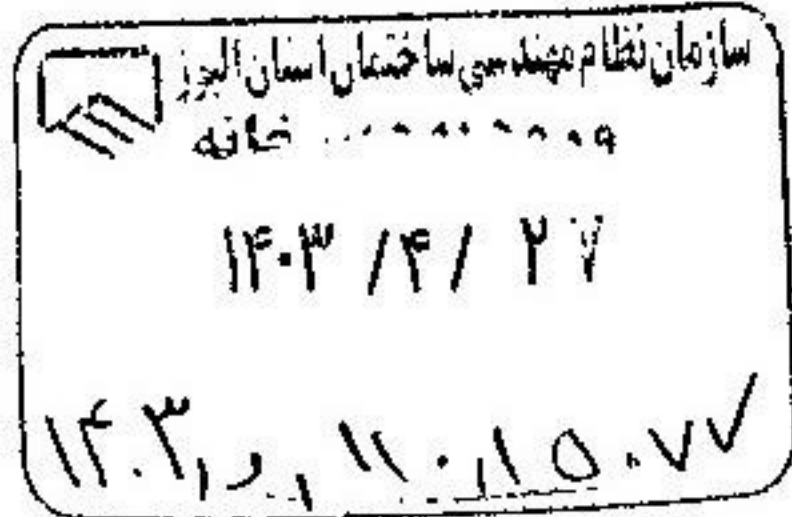 سازمان نظام مهندسی ساختمان استان البرز
خانه
۱۴۰۳/۴/۲۷
۱۴۰۳,د,۱۱۰,۱۵۰۷۷